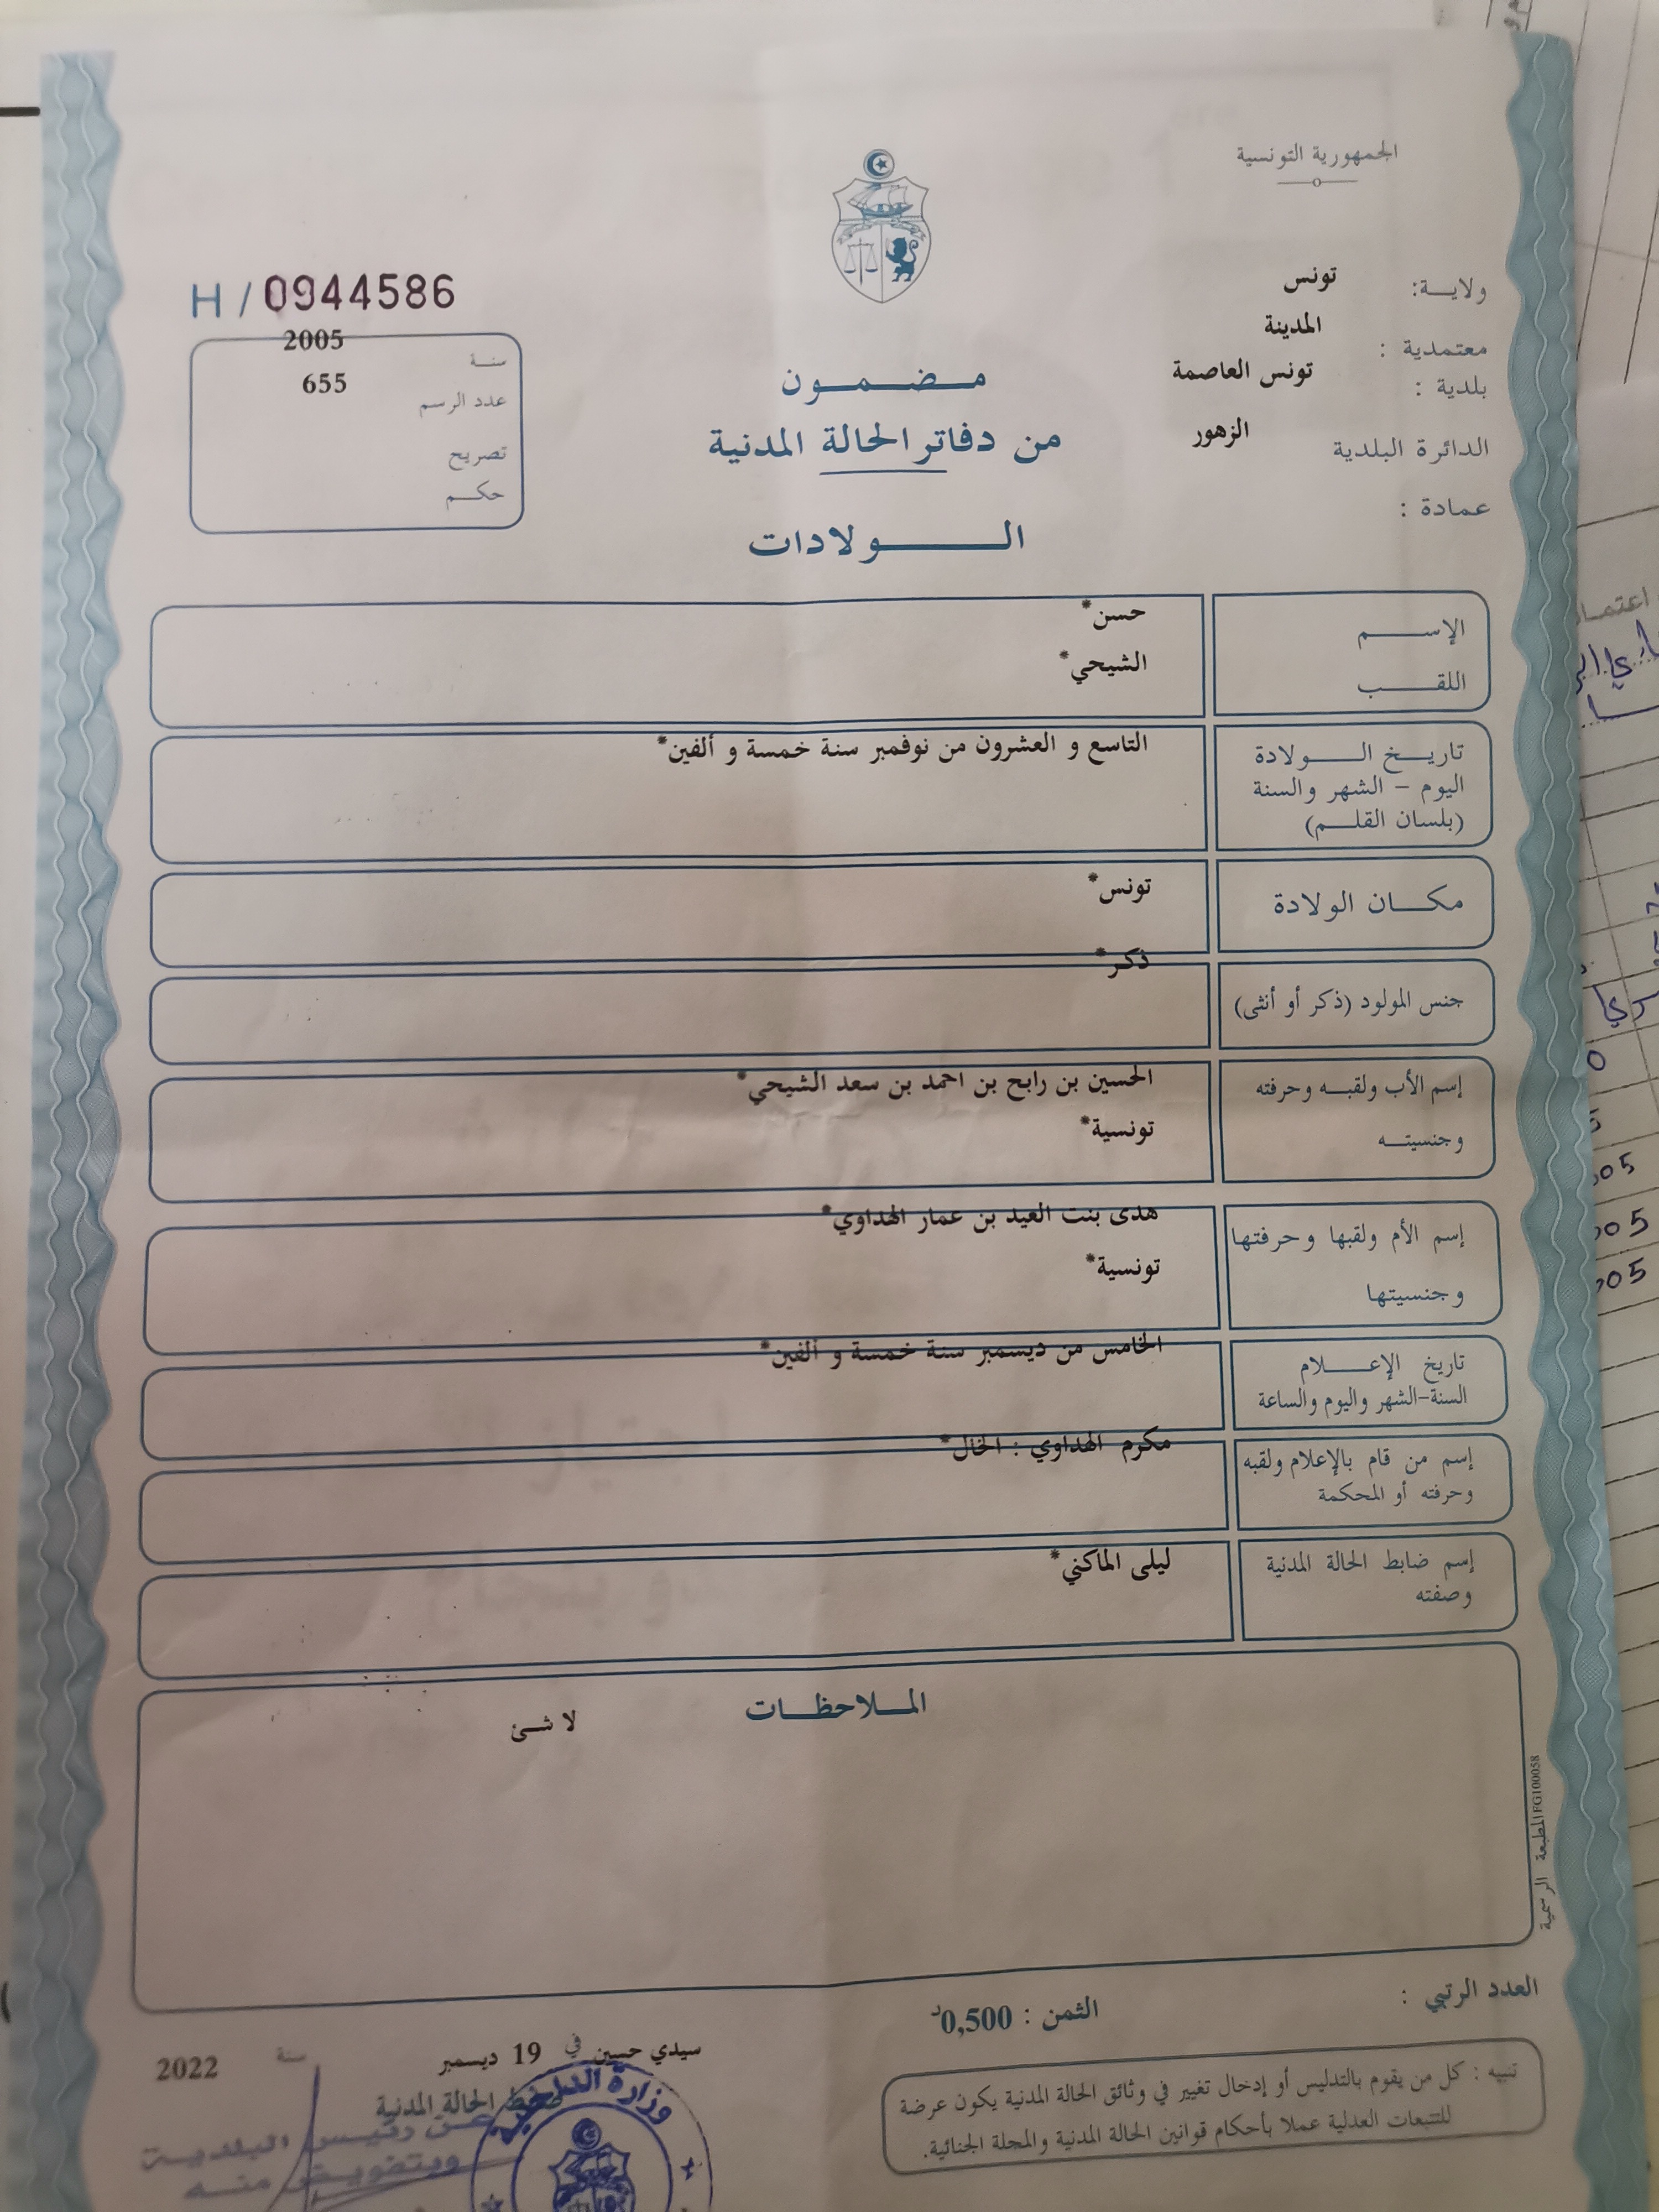 الجمهورية التونسية
ولايــة: تونس
معتمدية : المدينة
بلدية : تونس العاصمة
الدائرة البلدية الزهور
عمادة :
H / 0944586
سنــة 2005
عدد الرسم 655
تصريح
حكــم
مــضــمــون
من دفاتر الحالة المدنية
الــــولادات
الإســـــم حسن*
اللقـــــب الشيحي*
تاريــخ الــــولادة التاسع و العشرون من نوفمبر سنة خمسة و ألفين*
اليوم - الشهر والسنة
(بلسان القلــم)
مكــان الولادة تونس*
جنس المولود (ذكر أو أنثى) ذكر*
إسم الأب ولقبــه وحرفته الحسين بن رابح بن احمد بن سعد الشيحي*
وجنسيتــه تونسية*
إسم الأم ولقبها وحرفتها هدى بنت العيد بن عمار الهداوي*
وجنسيتها تونسية*
تاريخ الإعـــلام الخامس من ديسمبر سنة خمسة و ألفين*
السنة-الشهر واليوم والساعة
إسم من قام بالإعلام ولقبه مكرم الهداوي : الخال*
وحرفته أو المحكمة
إسم ضابط الحالة المدنية ليلى الماكني*
وصفته
المــلاحظــات
لا شئ
المطبعة الرسمية FG100058
العدد الرتبي :
الثمن : 0,500د
تنبيه : كل من يقوم بالتدليس أو إدخال تغيير في وثائق الحالة المدنية يكون عرضة
للتتبعات العدلية عملا بأحكام قوانين الحالة المدنية والمجلة الجنائية.
سيدي حسين في 19 ديسمبر سنة 2022
ضابط الحالة المدنية
عن رئيس البلدية
وبتفويض منه
وزارة الداخلية
005
005
005